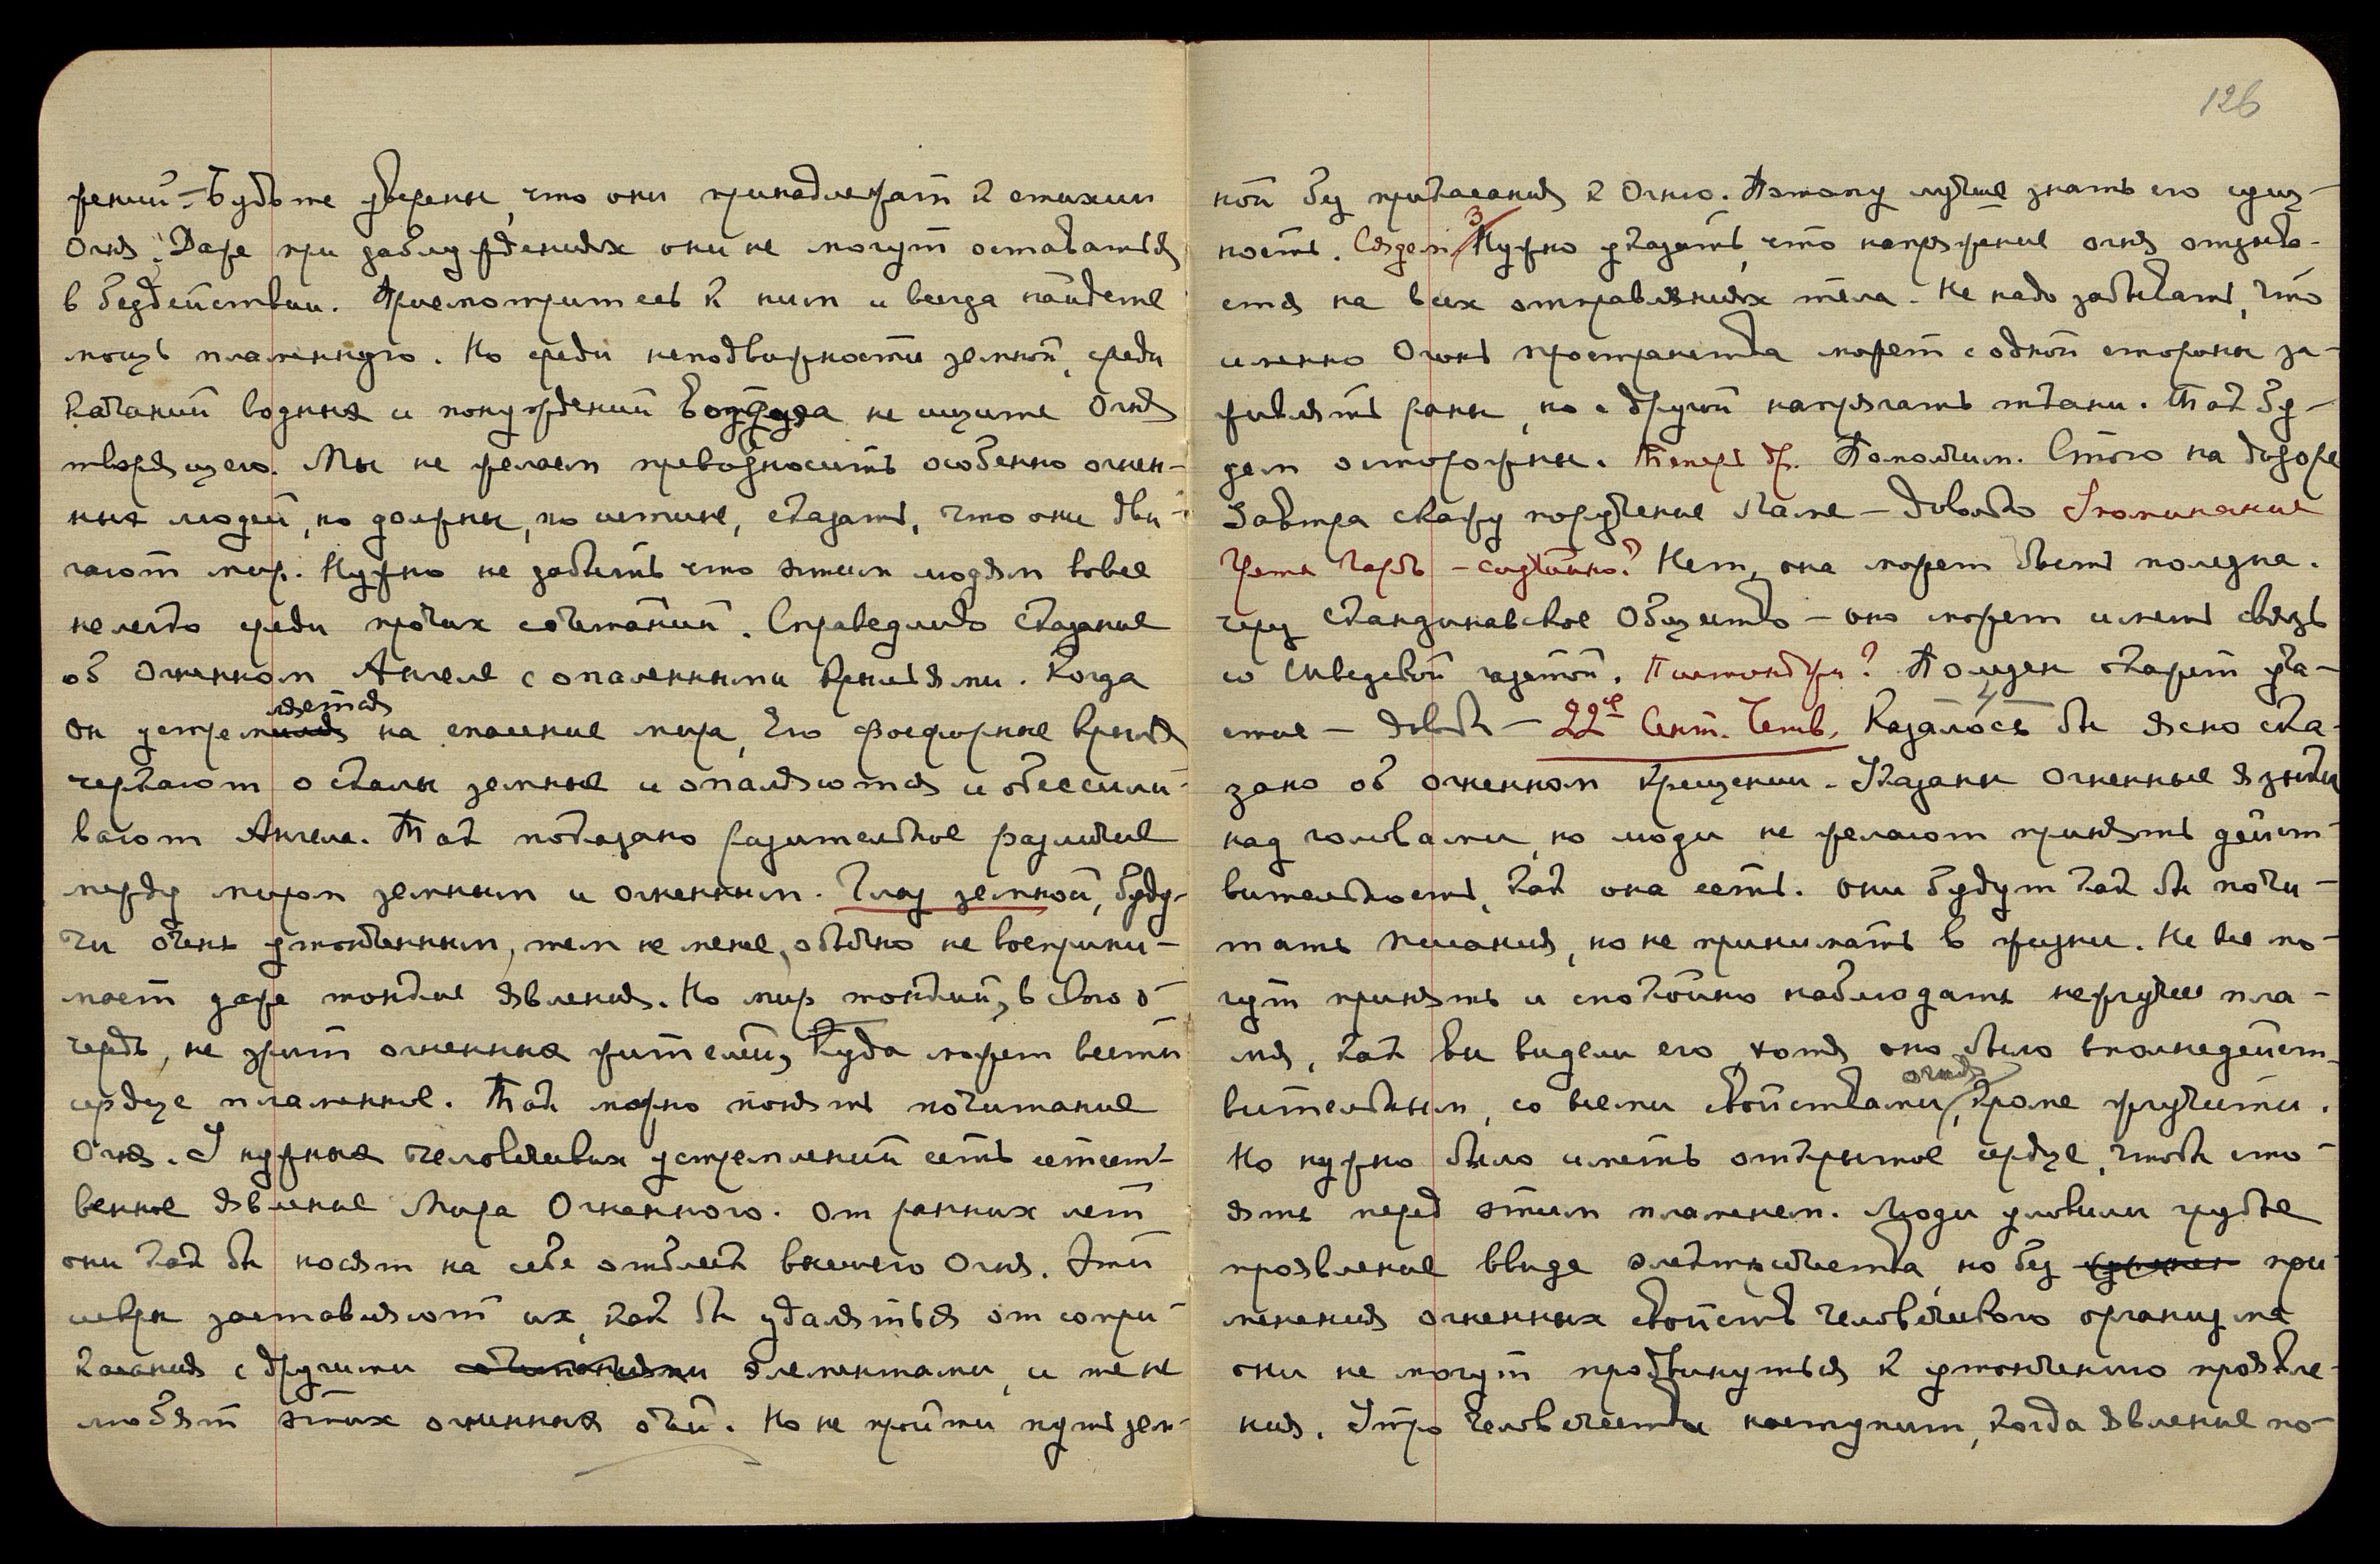 жений – Будьте уверены, что они принадлежат к стихии
Огня. Даже при заблуждениях они не могут оставаться
в бездействии. Присмотритесь к ним и всегда найдете
мощь пламенную. Но среди неподвижности земной, среди
качаний водных и понуждений воздуха не ищите Огня
творящего. Мы не желаем превозносить особенно огнен-
ных людей, но должны, по истине, сказать, что они дви-
гают мир. Нужно не забыть что этим людям вовсе
нелегко среди прочих сочетаний. Справедливо сказание
об огненном Ангеле с опаленными крыльями. Когда
ляется
он устремился на спасение мира, Его фосфорные крылья
черкают о скалы земные и опаляются и обессили-
вают Ангела. Так показано разительное различие
между миром земным и огненным. Глаз земной, буду-
чи очень утонченным, тем не менее, обычно не восприни-
мает даже тонкие явления. Но мир тонкий, в свою о-
чередь, не зрит огненных жителей, Куда может вести
сердце пламенное. Так можно понять почитание
Огня. И нужных человеческих устремлений есть естест-
венное явление Мира Огненного. От ранних лет
они как бы носят на себе отблеск высшего Огня. Эти
искры заставляют их, как бы удаляться от сопри-
касания с другими сочетаниями элементами, и те не
любят этих огненных очей. Но не пройти путь зем-
126
ной без прикасания к Огню. Потому лучше знать его сущ-
ность. Сядем 3 Нужно указать, что напряжение огня отзыва-
ется на всех отправлениях тела. Не надо забывать, что
именно Огонь пространства может с одной стороны за-
живлять раны, но с другой напрягать ткани. Так бу-
дем осторожны. Теперь др. Помолчим. Стою на дозоре
Завтра скажу поручение Ламе – довольно Упоминание
Гарб – случайно? Нет, она может быть полезна.
через скандинавское Общество – оно может иметь связь
со Шведской газетой. Полезен скажет уча-
стие – довольн – 22го Сент. Четв. 4 Казалось бы ясно ска-
зано об огненном крещении. Указаны огненные языки
над головами, но люди не желают принять дейст-
вительность, как она есть. они будут как бы почи-
тать писания, но не принимать в жизни. Не все мо-
гут принять и спокойно наблюдать нежгучее пла-
мя, как вы видели его, хотя оно было вполнедейст-
огня
вительным, со всеми свойствами, кроме жгучести.
Но нужно было иметь открытое сердце, чтобы сто-
ять перед этим пламенем. Люди уловили грубые
проявление ввиде электричества, но без при-
менения огненных свойств человеческого организма
они не могут продвинуться к утончению проявле-
ния. Утро человечества наступит, когда явление по-